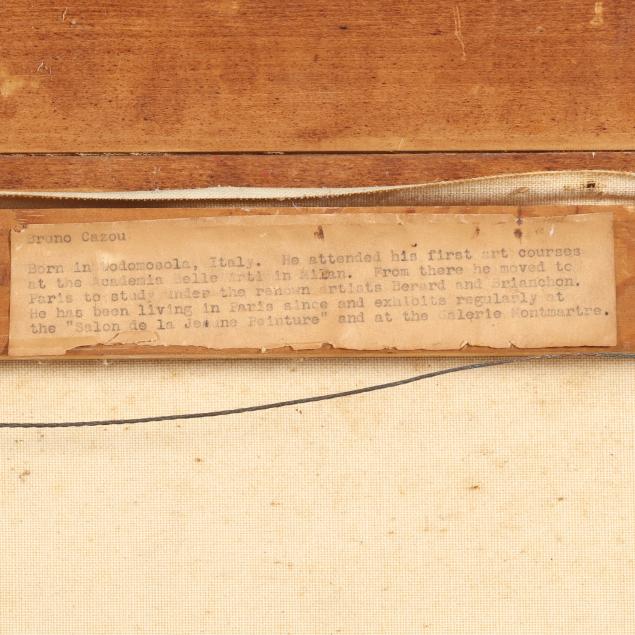 Bruno Cazou
Born in Dodomosola, Italy. He attended his first art courses
at the Academia Belle Arti in Milan. From there he moved to
Paris to study under the renown artists Berard and Brianchon.
He has been living in Paris since and exhibits regularly at
the "Salon de la Jeaune Peinture" and at the Galerie Montmartre.